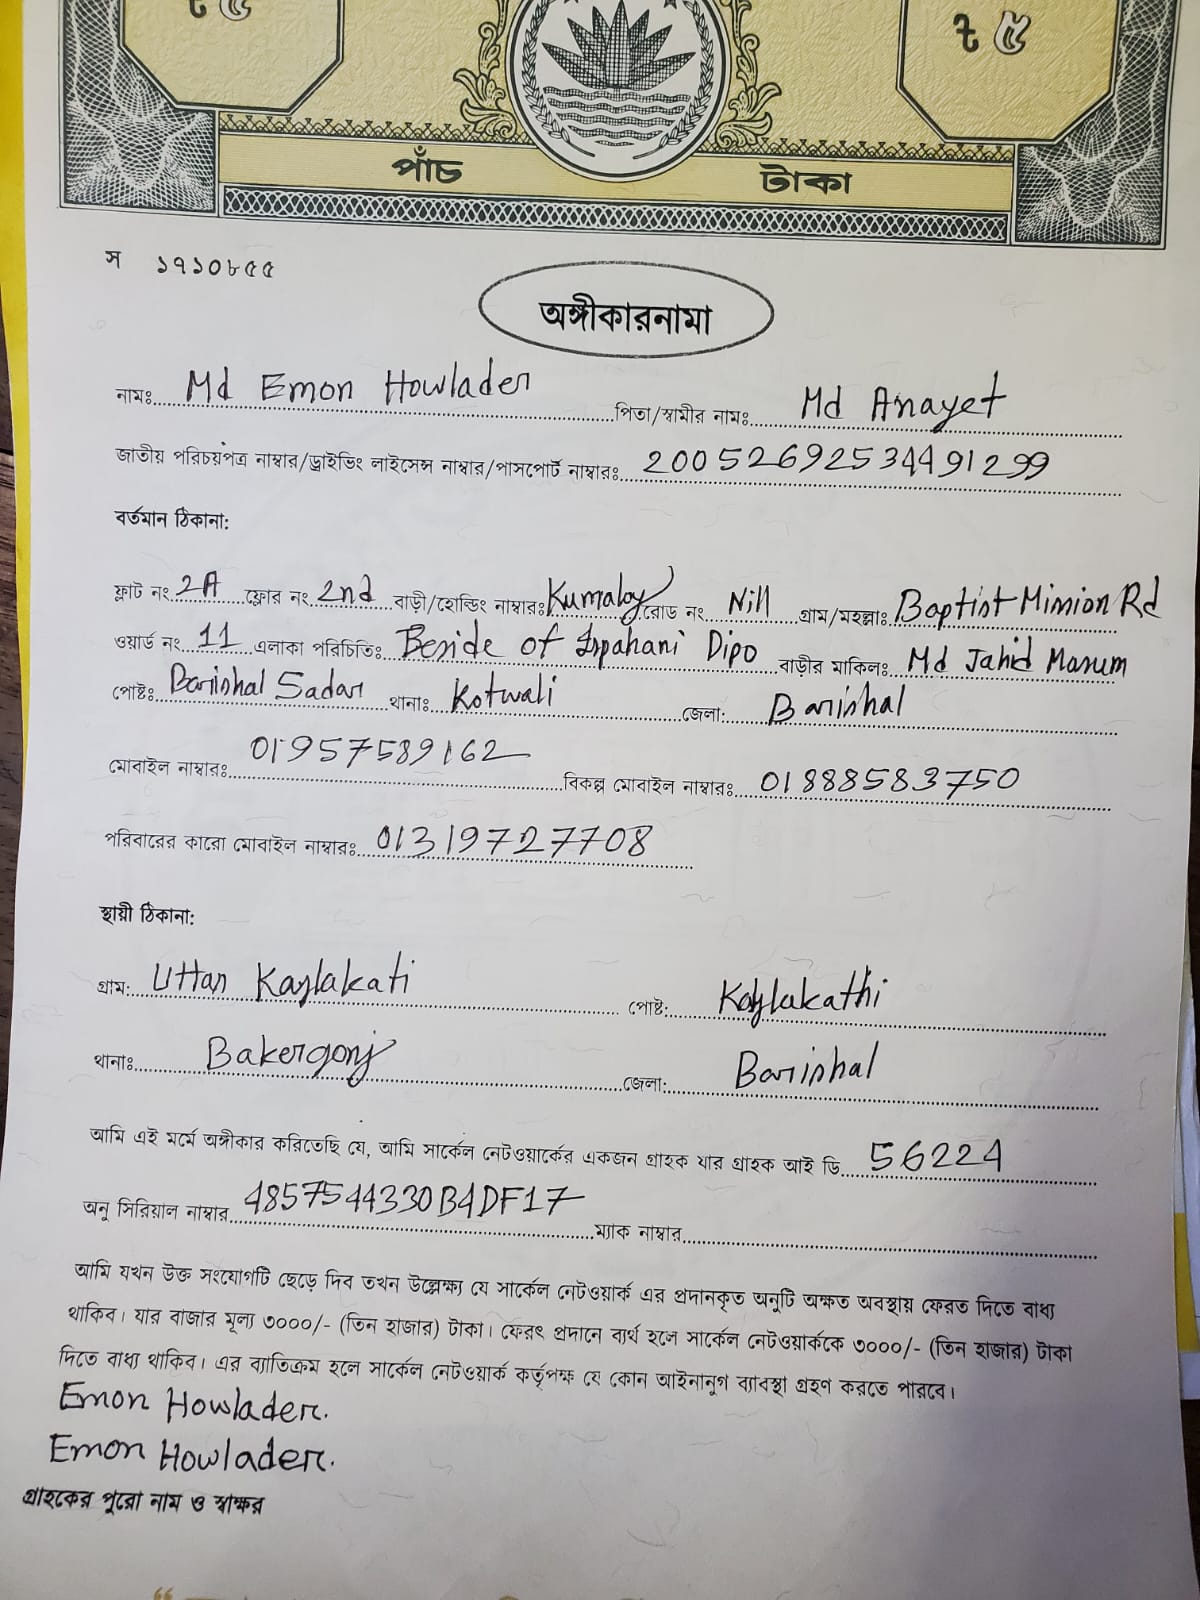 ৳ ৫
৳ ৫
পাঁচ টাকা
স ১৭১০৮৫৫
অঙ্গীকারনামা
নামঃ Md Emon Howlader পিতা/স্বামীর নামঃ Md Anayet
জাতীয় পরিচয়পত্র নাম্বার/ড্রাইভিং লাইসেন্স নাম্বার/পাসপোর্ট নাম্বারঃ 20052692534491299
বর্তমান ঠিকানা:
ফ্লাট নং 2A ফ্লোর নং 2nd বাড়ী/হোল্ডিং নাম্বারঃ Kumaloy রোড নং Nill গ্রাম/মহল্লাঃ Baptist Mission Rd
ওয়ার্ড নং 11 এলাকা পরিচিতিঃ Beside of Ispahani Dipo বাড়ীর মাকিলঃ Md Jahid Masum
পোষ্টঃ Barishal Sadar থানাঃ Kotwali জেলা: Barishal
মোবাইল নাম্বারঃ 01957589162 বিকল্প মোবাইল নাম্বারঃ 01888583750
পরিবারের কারো মোবাইল নাম্বারঃ 01319727708
স্থায়ী ঠিকানা:
গ্রাম: Uttar Kaylakati পোষ্ট: Kaylakathi
থানাঃ Bakergonj জেলা: Barishal
আমি এই মর্মে অঙ্গীকার করিতেছি যে, আমি সার্কেল নেটওয়ার্কের একজন গ্রাহক যার গ্রাহক আই ডি 56224
অনু সিরিয়াল নাম্বার 4857544330B4DF17 ম্যাক নাম্বার
আমি যখন উক্ত সংযোগটি ছেড়ে দিব তখন উল্লেক্ষ্য যে সার্কেল নেটওয়ার্ক এর প্রদানকৃত অনুটি অক্ষত অবস্থায় ফেরত দিতে বাধ্য
থাকিব। যার বাজার মূল্য ৩০০০/- (তিন হাজার) টাকা। ফেরৎ প্রদানে ব্যর্থ হলে সার্কেল নেটওয়ার্ককে ৩০০০/- (তিন হাজার) টাকা
দিতে বাধ্য থাকিব। এর ব্যাতিক্রম হলে সার্কেল নেটওয়ার্ক কর্তৃপক্ষ যে কোন আইনানুগ ব্যাবস্থা গ্রহণ করতে পারবে।
Emon Howlader.
Emon Howlader.
গ্রাহকের পুরো নাম ও স্বাক্ষর